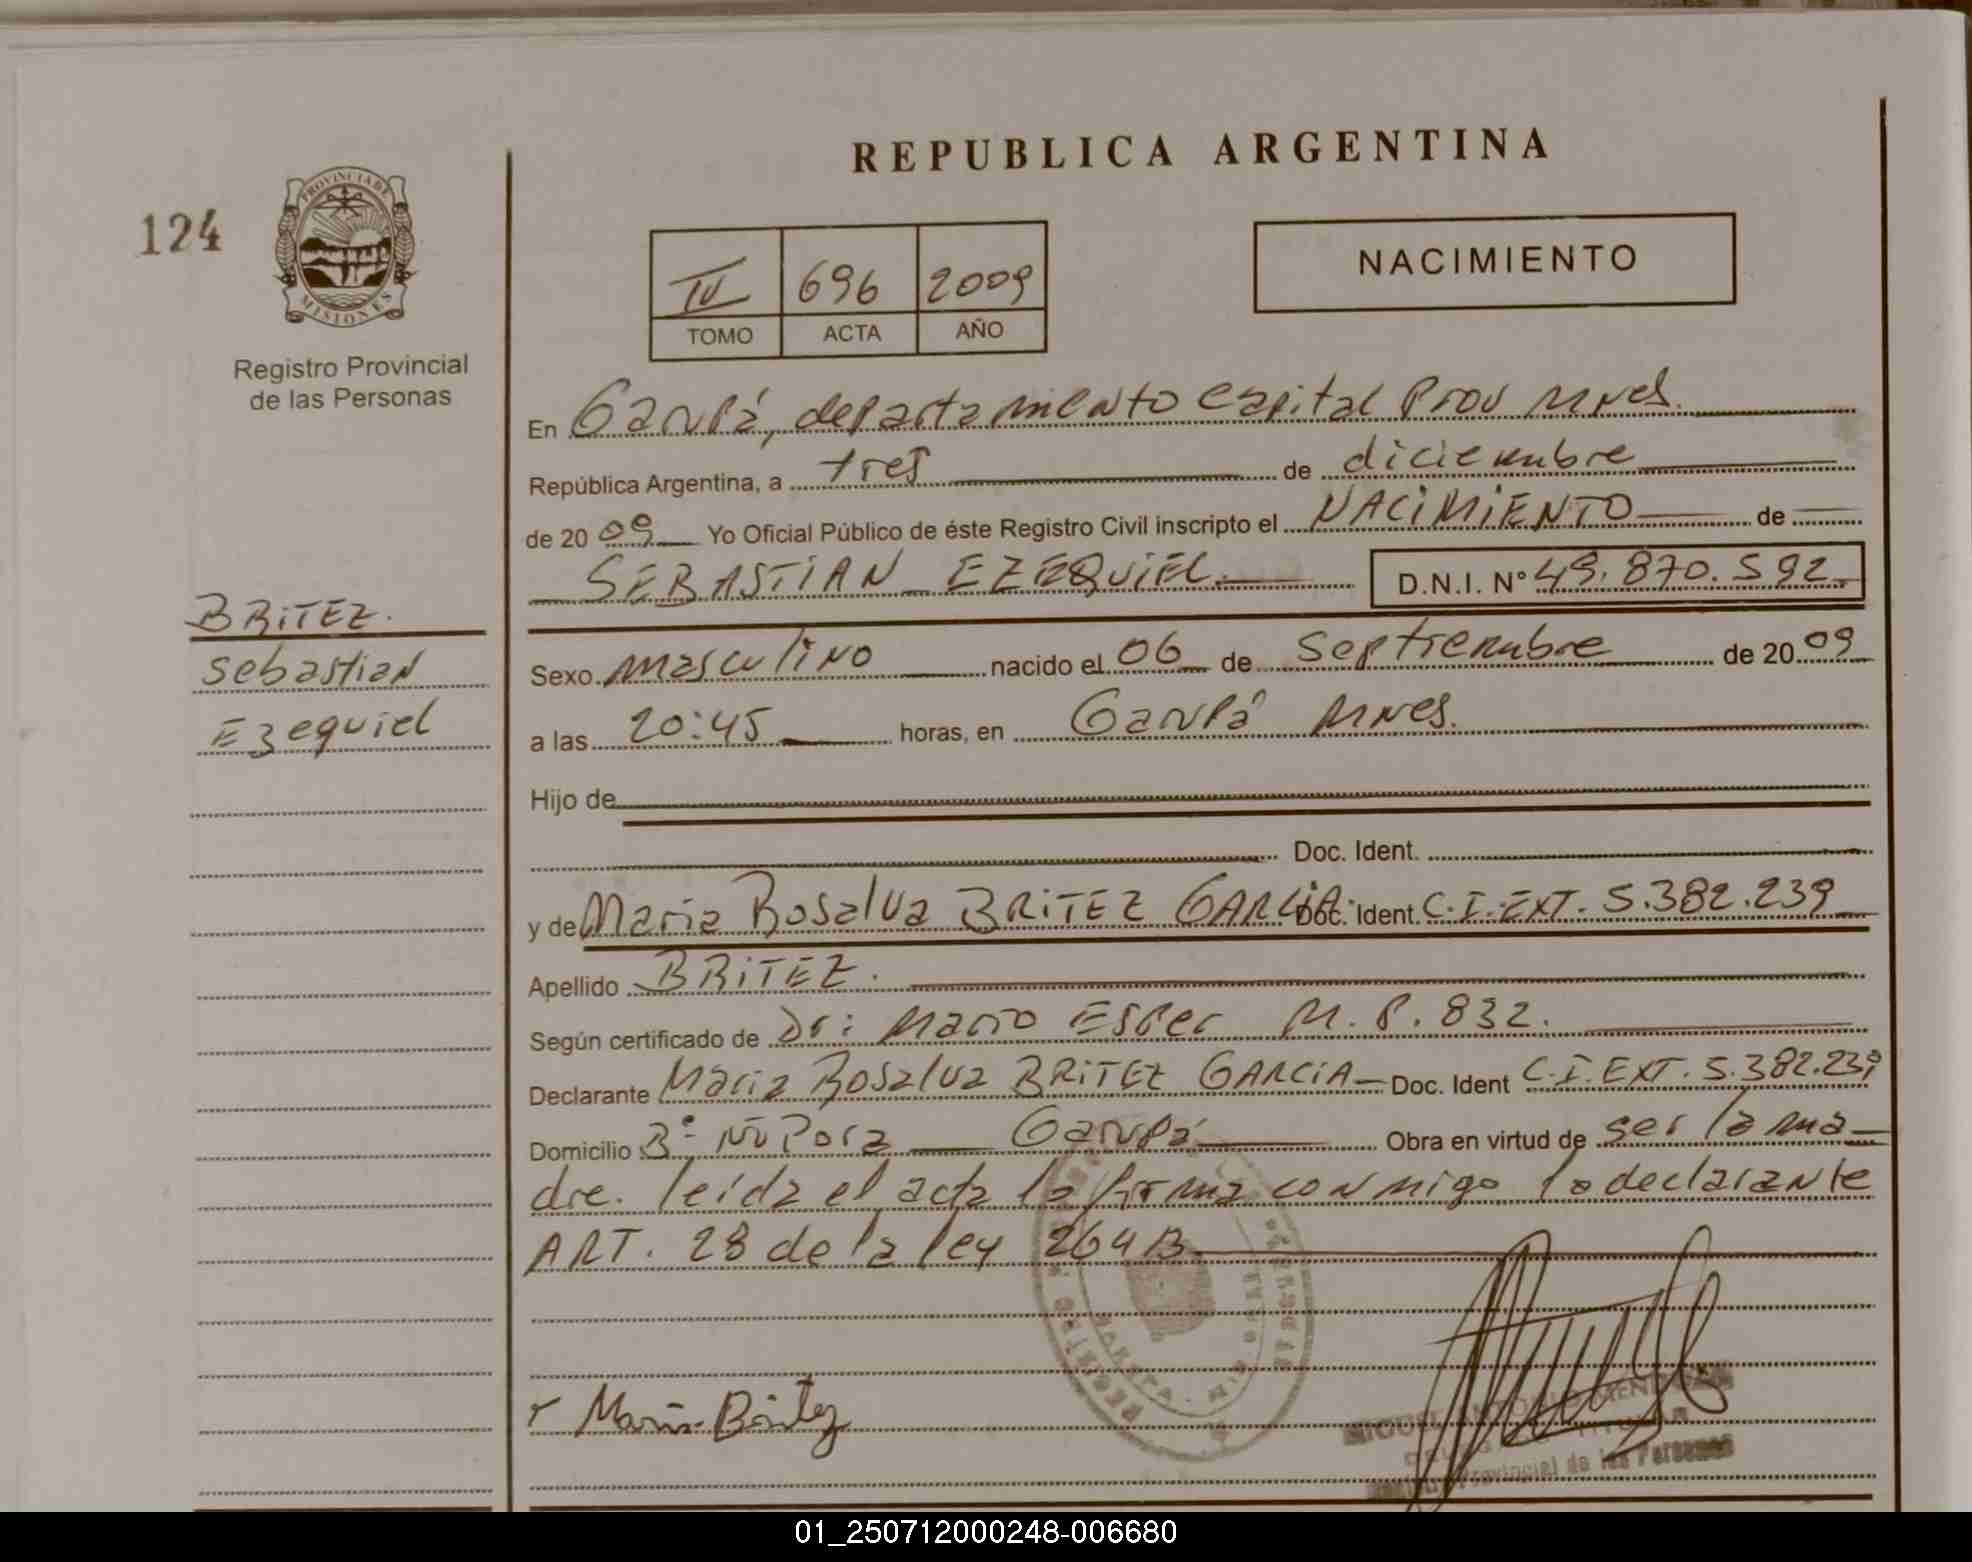 REPUBLICA ARGENTINA
124
PROVINCIA DE
MISIONES
Registro Provincial
de las Personas
IV 696 2009
TOMO ACTA AÑO
NACIMIENTO
En Garupá, departamento Capital Prov Mnes.
República Argentina, a tres de diciembre
de 2009 Yo Oficial Público de éste Registro Civil inscripto el NACIMIENTO de
SEBASTIAN EZEQUIEL. D.N.I. N° 49.870.592.
BRITEZ.
Sebastian
Ezequiel
Sexo masculino nacido el 06 de septiembre de 2009
a las 20:45 horas, en Garupá Mnes.
Hijo de
Doc. Ident.
y de Maria Rosalva BRITEZ GARCIA. Doc. Ident. C.I. EXT. 5.382.239
Apellido BRITEZ.
Según certificado de Dr: Mario Esper M.P. 832.
Declarante Maria Rosalva BRITEZ GARCIA Doc. Ident C.I. EXT. 5.382.239
Domicilio B° Ñu Pora Garupá Obra en virtud de ser la ma
dre. leida el acta la firma conmigo la declarante
ART. 28 de la ley 26413
Maria Britez
MIGUEL ANTONIO MENDOZA
Provincial de las Personas
01_250712000248-006680